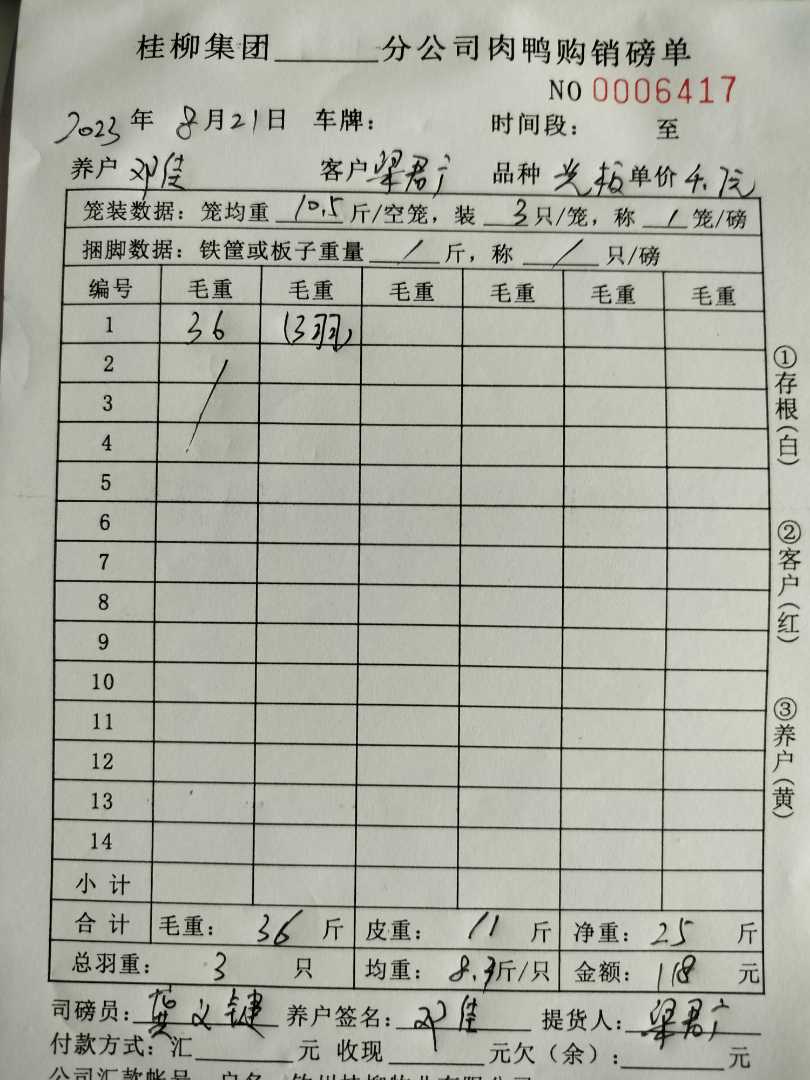 桂柳集团______分公司肉鸭购销磅单
NO 0006417
2023年 8月21日 车牌: 时间段: 至
养户 邓佳 客户 梁君广 品种 光板 单价 4.7元
笼装数据: 笼均重 10.5 斤/空笼, 装 3 只/笼, 称 1 笼/磅
捆脚数据: 铁筐或板子重量 / 斤, 称 / 只/磅
编号 毛重 毛重 毛重 毛重 毛重 毛重
1 36 (3羽)
2
3
4
5
6
7
8
9
10
11
12
13
14
小计
合计 毛重: 36 斤 皮重: 11 斤 净重: 25 斤
总羽重: 3 只 均重: 8.3斤/只 金额: 118 元
司磅员: 文键 养户签名: 邓佳 提货人: 梁君广
付款方式: 汇______元 收现______元欠(余):______元
公司汇款帐号 户名
①存根(白)
②客户(红)
③养户(黄)